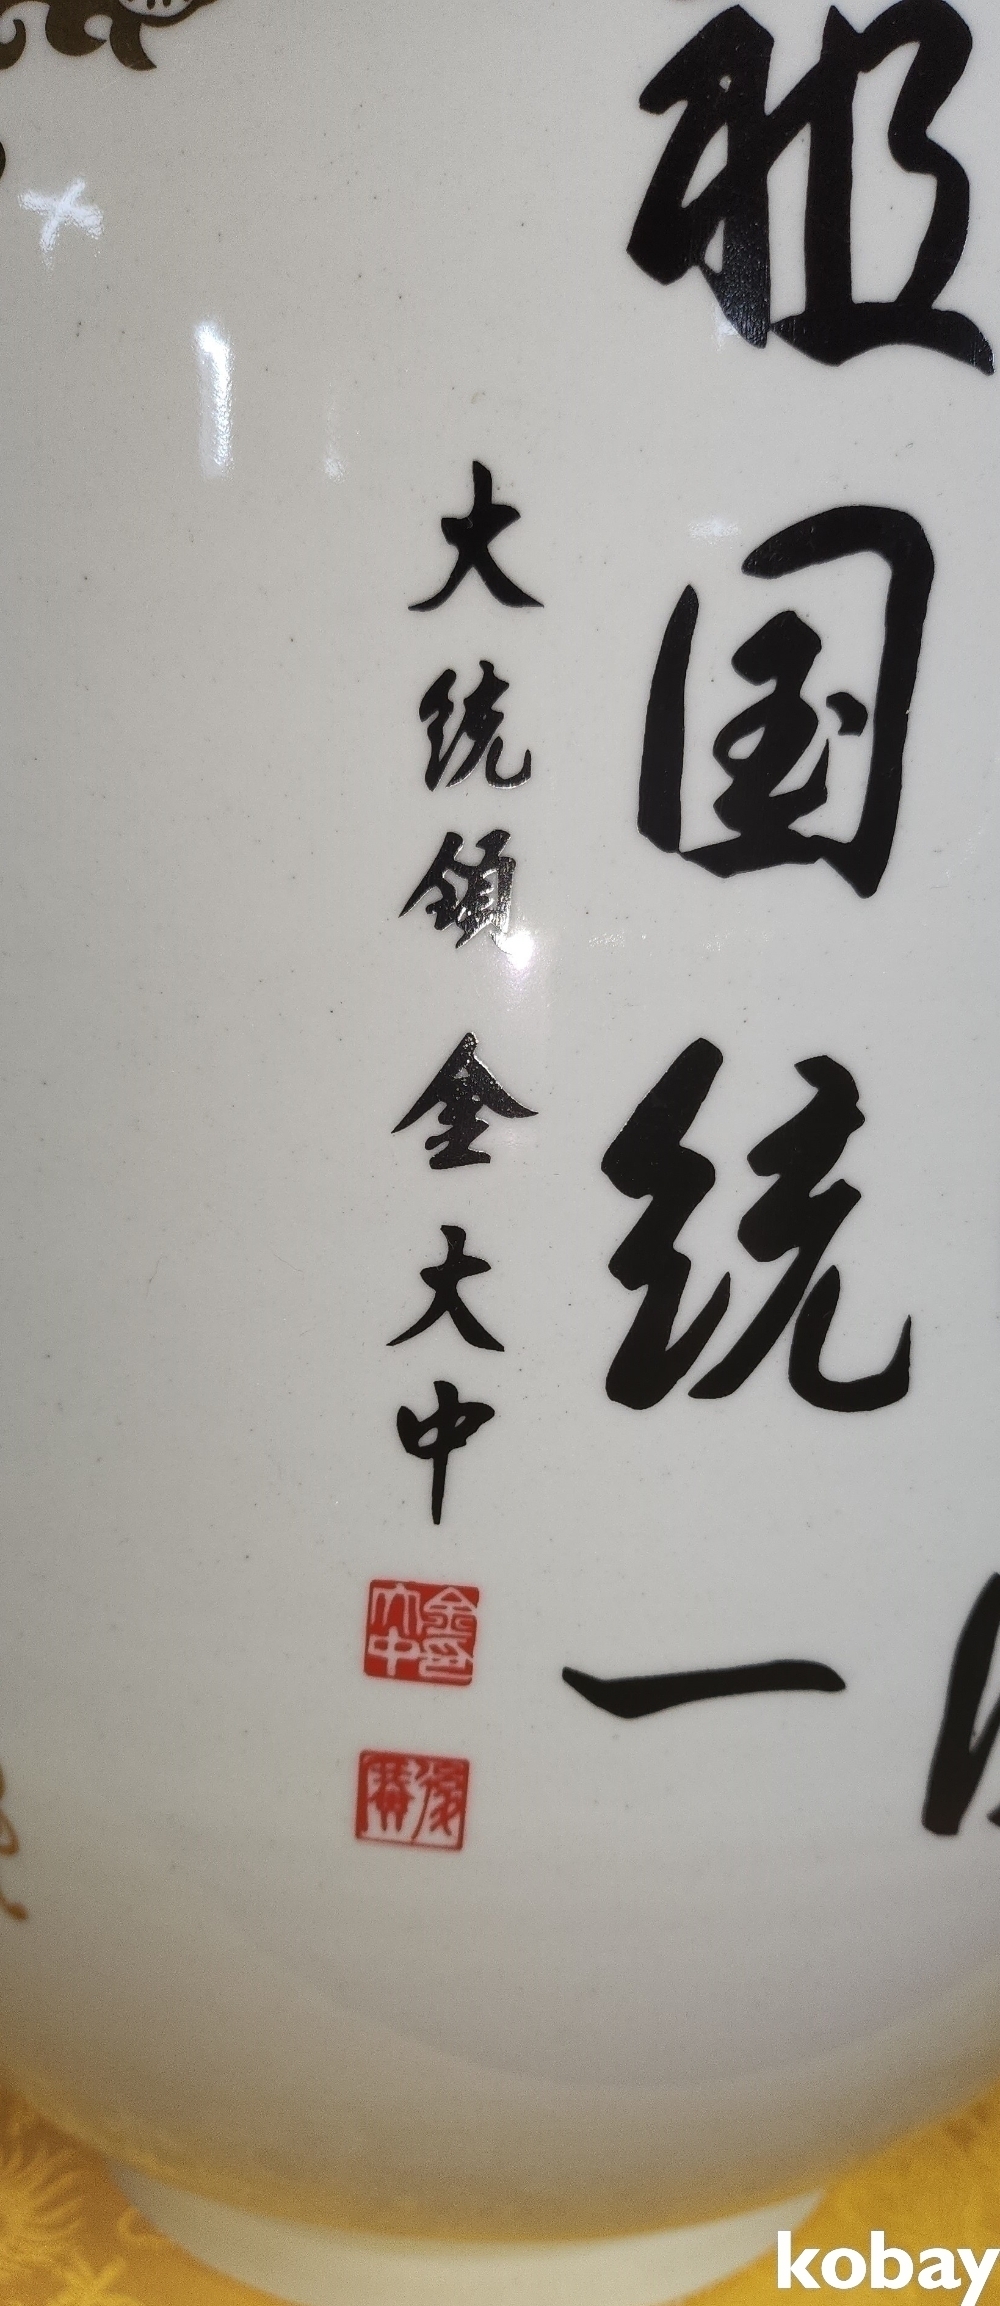 祖国统一
大统领 金大中
金大中印
後廣
kobay